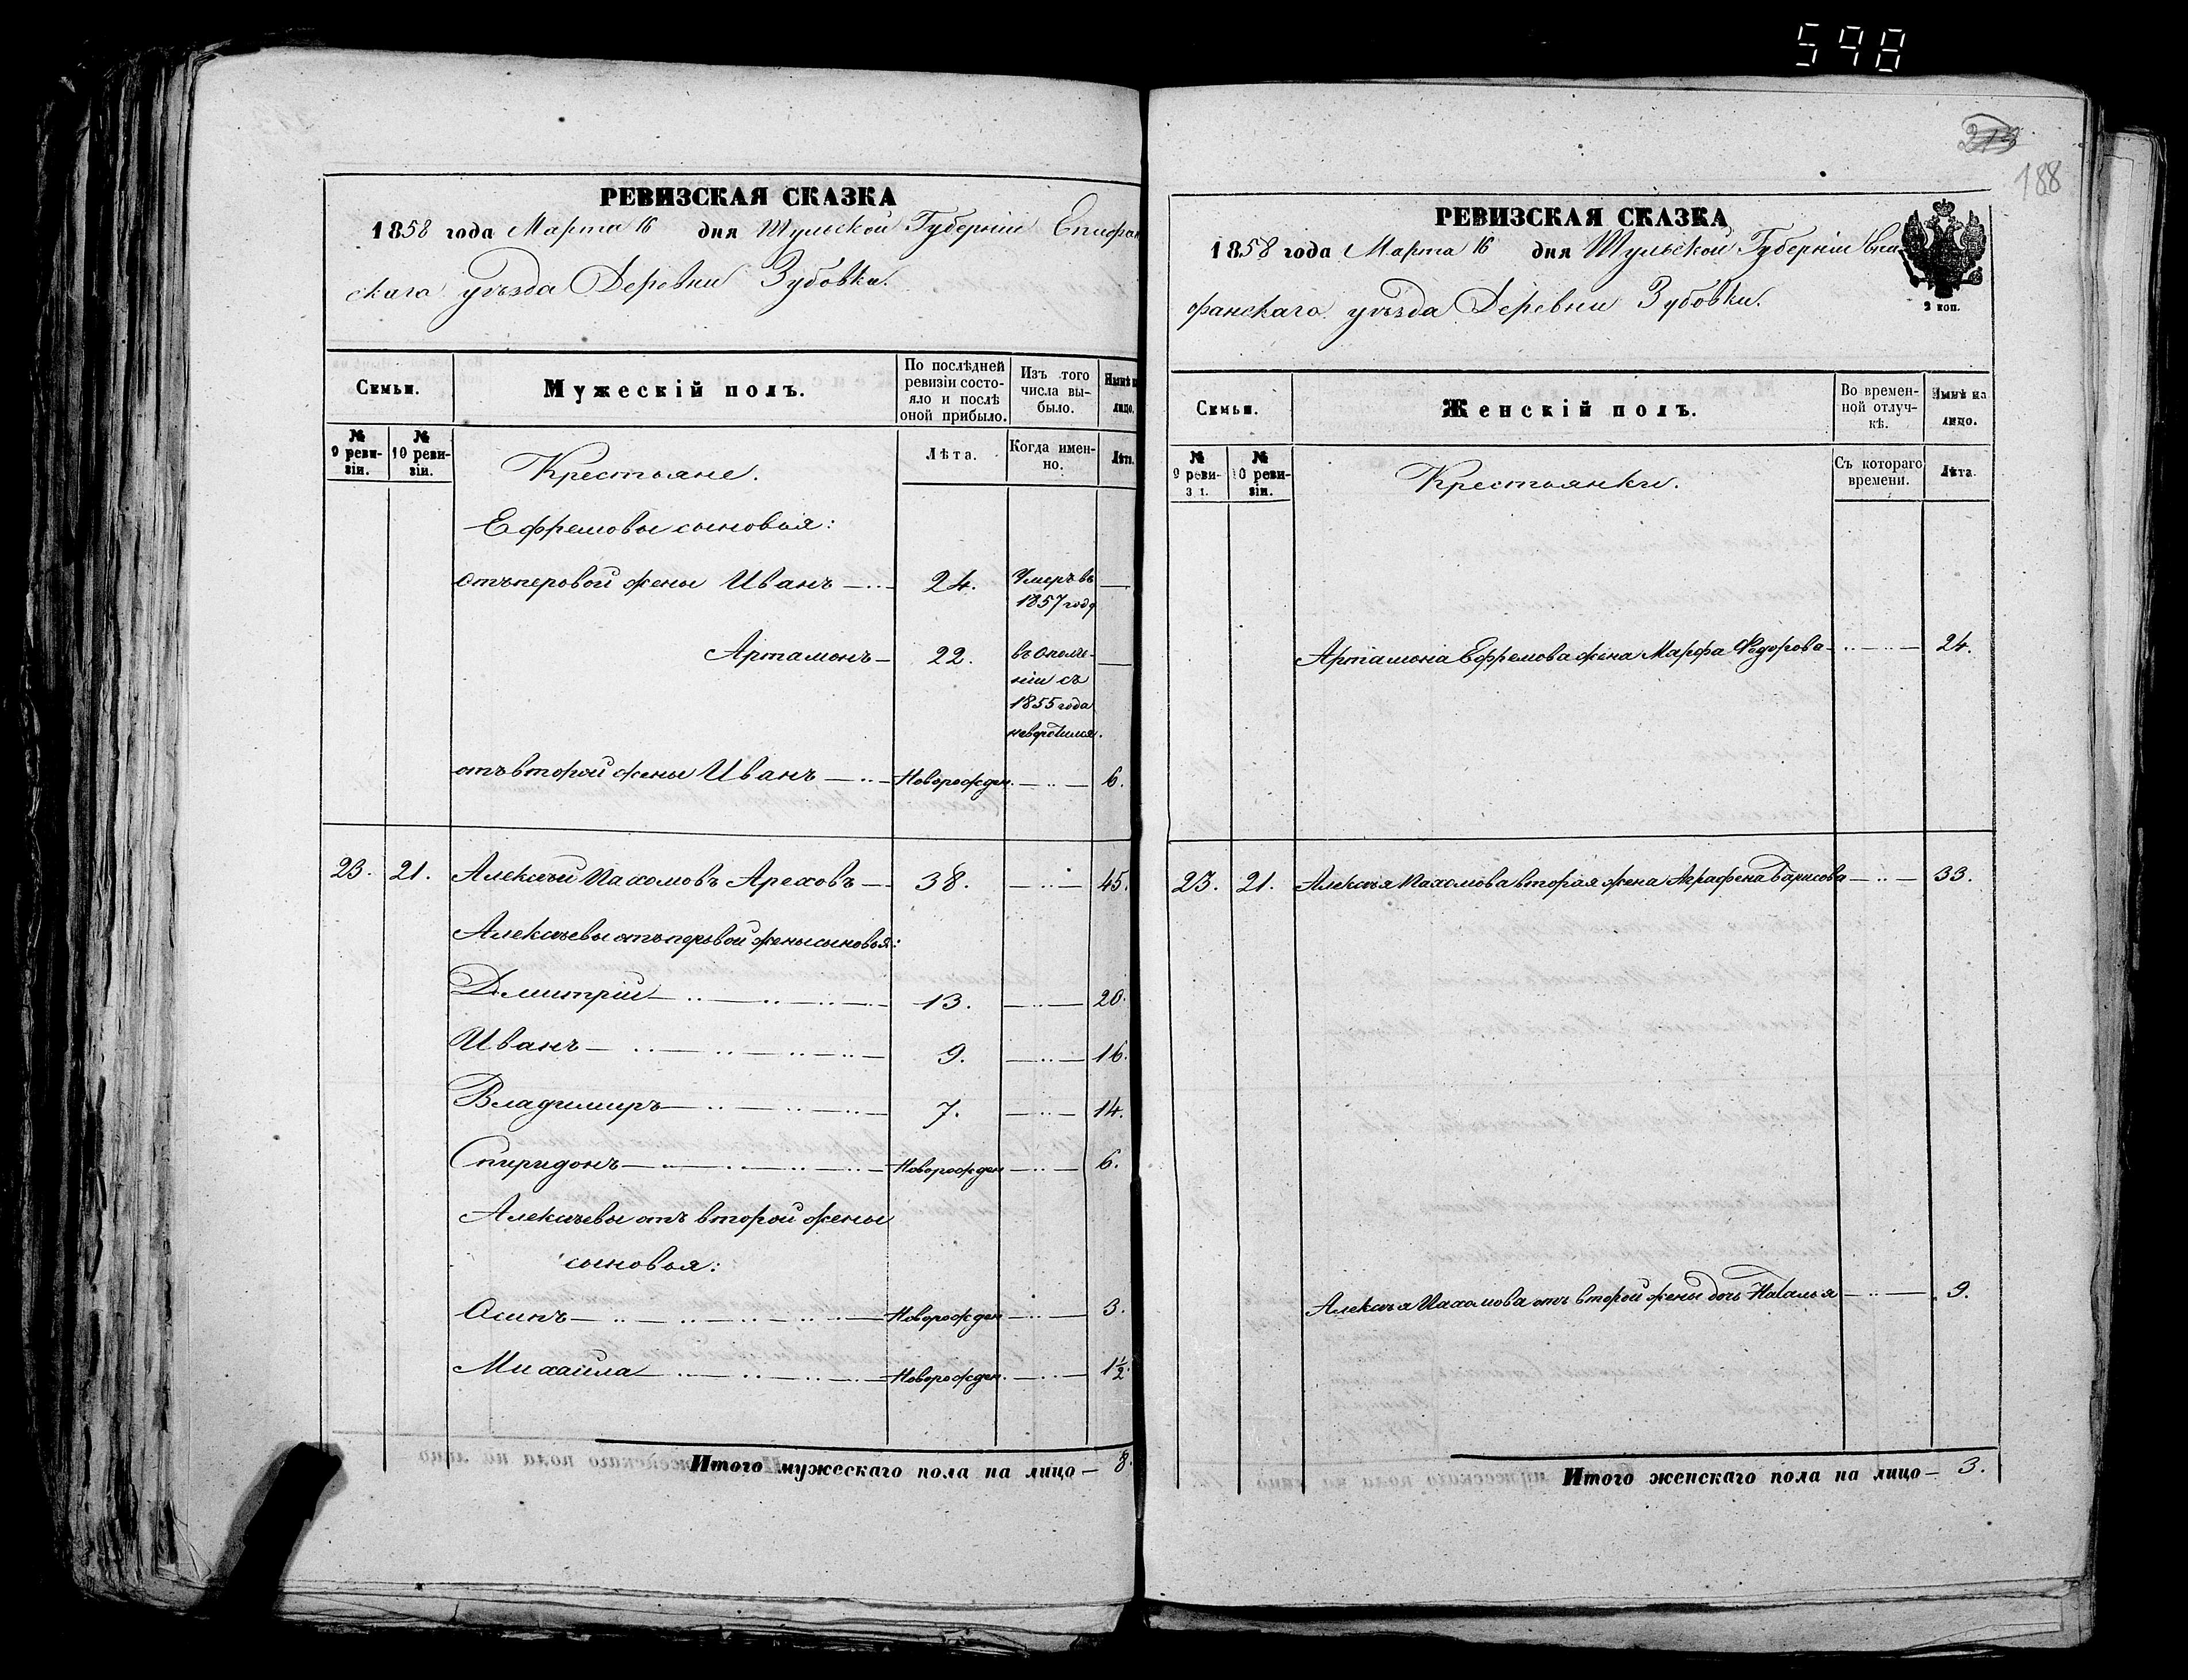 598
188
РЕВИЗСКАЯ СКАЗКА
1858 года Марта 16 дня Тульской Губерніи Епифан
скаго уѣзда Деревни Зубовки.
Семьи.
Мужескій полъ.
По послѣдней ревизіи состо-
яло и послѣ оной прибыло.
Изъ того числа вы-
было.
Нынѣ на лицо.
№ 9 реви-
зіи.
№ 10 реви-
зіи.
Крестьяне.
Лѣта.
Когда имен-
но.
Лѣта.
Ефремовы сыновья:
отъ первой жены Иванъ — 24. Умеръ въ —
1857 году
Артамонъ — 22. въ ополче- —
ніи съ
1855 года
невротился.
отъ второй жены Иванъ — Новорожден. — 6.
23. 21. Алексѣй Пахомовъ Ареховъ — 38. — 45.
Алексѣевы отъ первой жены сыновья:
Дмитрій — 13. — 20.
Иванъ — 9. — 16.
Владимиръ — 7. — 14.
Спиридонъ — Новорожден — 6.
Алексѣевы отъ второй жены
сыновья:
Осипъ — Новорожден — 3.
Михаила — Новорожден. — 1½.
Итого мужескаго пола на лицо — 8.
РЕВИЗСКАЯ СКАЗКА
1858 года Марта 16 дня Тульской Губерніи Епи
фанскаго уѣзда Деревни Зубовки.
2 коп.
Семьи.
Женскій полъ.
Во времен-
ной отлуч-
кѣ.
Нынѣ на лицо.
№ 9 реви-
зі.
№ 10 реви-
зіи.
Крестьянки.
Съ котораго времени.
Лѣта.
Артамона Ефремова жена Марфа Федорова — 24.
23. 21. Алексѣя Пахомова вторая жена Аграфена Барисова — 33.
Алексѣя Пахомова отъ второй жены дочь Наталья — 9.
Итого женскаго пола на лицо — 3.